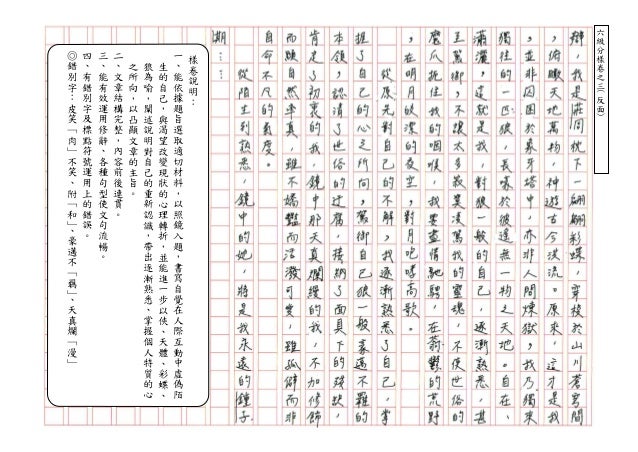 六級分樣卷之三(反面)
辯，我是莊周枕下一翩翩彩蝶，穿梭於山川蒼雲間
，俯瞰天地萬物，神遊古今漢流。原來，這才是我
，並非困囿於萬象牙塔中，亦非人間煉獄，我乃獨來
獨往的一匹狼，長嚎於彼遙無一物之天地。自在、
瀟灑，這就是我，對狼一般的自己，逐漸熟悉，甚
至駕御，我不讓太多寂寞浸罵我的靈魂，不使世俗的
魔爪扼住我的咽喉，我要盡情馳騁，在蒼鬱的荒野
，在明月皎潔的夜空，對月咆哮高歌。
從原先對自己的不解，我逐漸熟悉了自己，掌
握了自己的心之所向，駕御自己狼一般豪邁不羅的
本領，認清了世俗的迂腐，接納了面具下的殘缺，
肯定了初衷的我，鏡中那天真爛縵的我，不加修飾
而顯自然率真，雖不嬌豔而活潑可愛，雖孤僻而非
自命不凡的氣度。
從陌生到熟悉，鏡中的她，將是我永遠的鍾子
期……
樣卷說明：
一、能依據題旨選取適切材料，以照鏡入題，書寫自覺在人際互動中虛偽陌
生的自己，與渴望改變現狀的心理轉折，並能進一步以俠、天體、彩蝶、
狼為喻，闡述說明對自己的重新認識，帶出逐漸熟悉、掌握個人特質的心
之所向，以凸顯文章的主旨。
二、文章結構完整，內容前後連貫。
三、能有效運用修辭、各種句型使文句流暢。
四、有錯別字及標點符號運用上的錯誤。
◎錯別字：皮笑「肉」不笑、附「和」、豪邁不「羈」、天真爛「漫」